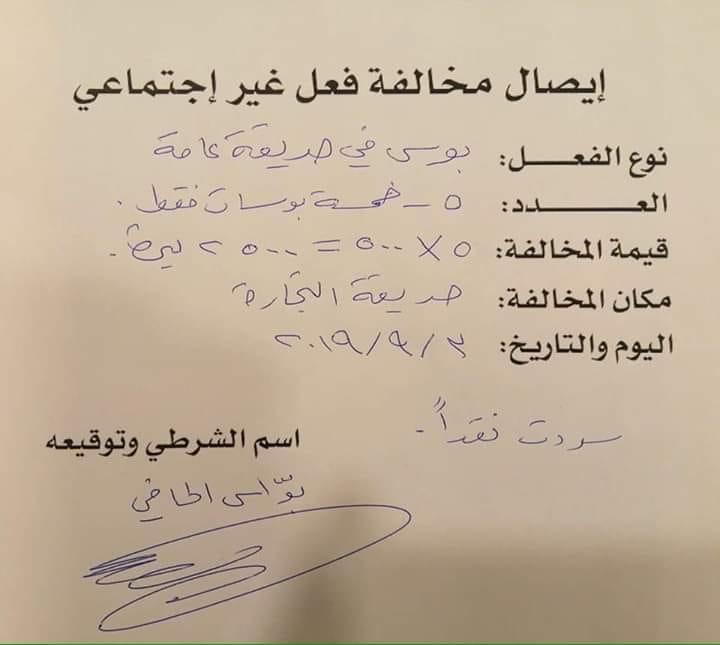 إيصال مخالفة فعل غير إجتماعي
نوع الفعـــــل: بوس في حديقة عامة
العـــــــدد: ٥ - خمسة بوسات فقط.
قيمة المخالفة: ٥ × ٥٠٠ = ٢٥٠٠ ليرة.
مكان المخالفة: حديقة التجارة
اليوم والتاريخ: ٣ / ٩ / ٢٠١٩
سددت نقداً -
اسم الشرطي وتوقيعه
بوّاس الحافي